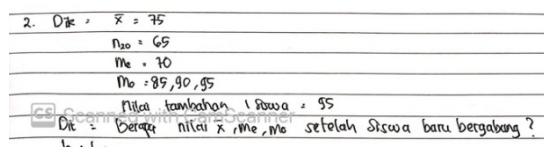 2. Dik : x̄ = 75
n₂₀ = 65
Me = 70
Mo = 85, 90, 95
Nilai tambahan 1 siswa = 95
CS Scanned with CamScanner
Dit = Berapa nilai x̄, Me, Mo setelah siswa baru bergabung?